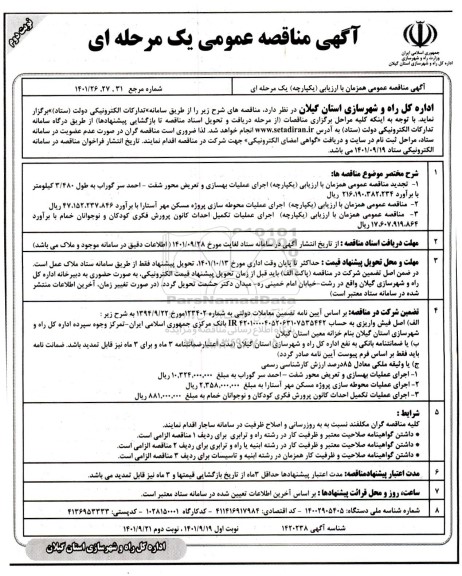 نوبت دوم
آگهی مناقصه عمومی یک مرحله ای
جمهوری اسلامی ایران
وزارت راه و شهرسازی
اداره کل راه و شهرسازی استان گیلان
آگهی مناقصه عمومی همزمان با ارزیابی (یکپارچه) یک مرحله ای
شماره مرجع ۳۱ ، ۲۷ ، ۱۴۰۱/۲۶
اداره کل راه و شهرسازی استان گیلان در نظر دارد، مناقصه های شرح زیر را از طریق سامانه «تدارکات الکترونیکی دولت (ستاد)» برگزار
نماید. با توجه به اینکه کلیه مراحل برگزاری مناقصات (از مرحله دریافت و تحویل اسناد مناقصه تا بازگشایی پیشنهادها) از طریق درگاه سامانه
تدارکات الکترونیکی دولت (ستاد) به آدرس www.setadiran.ir انجام خواهد شد. لذا ضروری است مناقصه گران در صورت عدم عضویت در سامانه
ستاد، مراحل ثبت نام در سایت و دریافت «گواهی امضای الکترونیکی» جهت شرکت در مناقصه اقدام نمایند. تاریخ انتشار فراخوان مناقصه در سامانه
الکترونیکی ستاد ۱۴۰۱/۰۹/۱۹ می باشد.
۱ شرح مختصر موضوع مناقصه ها:
۱- تجدید مناقصه عمومی همزمان با ارزیابی (یکپارچه) اجرای عملیات بهسازی و تعریض محور شفت - احمد سر گوراب به طول ۳/۴۸۰ کیلومتر
با برآورد ۲۱۶،۱۹۰،۳۸۲،۲۳۴ ریال
۲- مناقصه عمومی همزمان با ارزیابی (یکپارچه) اجرای عملیات محوطه سازی پروژه مسکن مهر آستارا با برآورد ۴۷،۱۵۲،۲۳۷،۸۴۶ ریال
۳- مناقصه عمومی همزمان با ارزیابی (یکپارچه) اجرای عملیات تکمیل احداث کانون پرورش فکری کودکان و نوجوانان خمام با برآورد
۱۷،۶۰۷،۹۱۹،۸۶۴ ریال
۲ مهلت دریافت اسناد مناقصه : از تاریخ انتشار آگهی در سامانه ستاد لغایت مورخ ۱۴۰۱/۰۹/۲۸ (اطلاعات دقیق در سامانه موجود و ملاک می باشد)
۳ مهلت و محل تحویل پیشنهاد قیمت : حداکثر تا پایان وقت اداری مورخ ۱۴۰۱/۱۰/۱۳، تحویل پیشنهاد فقط از طریق سامانه ستاد ملاک عمل است.
در ضمن اصل تضمین شرکت در مناقصه (پاکت الف) باید قبل از زمان تحویل پیشنهاد قیمت الکترونیکی، به صورت حضوری به دبیرخانه اداره کل
راه و شهرسازی گیلان واقع در رشت-خیابان امام خمینی ره- میدان دکتر حشمت تحویل گردد. (در صورت تغییر زمان، آخرین اطلاعات منتشر
شده در سامانه ستاد معتبر است)
۴ تضمین شرکت در مناقصه: بر اساس آیین نامه تضمین معاملات دولتی به شماره ۱۲۳۴۰۲ مورخ ۱۳۹۴/۹/۲۲ به شرح زیر :
الف) اصل فیش واریزی به حساب IR بانک مرکزی جمهوری اسلامی ایران-تمرکز وجوه سپرده اداره کل راه و
شهرسازی استان گیلان بنام خزانه معین استان گیلان
ب) یا ضمانتنامه بانکی به نفع اداره کل راه و شهرسازی استان گیلان (مدت اعتبار ضمانتنامه ۳ ماه و برای ۳ ماه نیز قابل تمدید باشد. ضمانت نامه
باید فقط بر اساس فرم پیوست آیین نامه صادر گردد)
ج) یا وثیقه ملکی معادل ۸۵درصد ارزش کارشناسی رسمی
۱- اجرای عملیات بهسازی و تعریض محور شفت - احمد سر گوراب به مبلغ ۱۰،۳۲۴،۰۰۰،۰۰۰ ریال
۲- اجرای عملیات محوطه سازی پروژه مسکن مهر آستارا به مبلغ ۲،۳۵۸،۰۰۰،۰۰۰ ریال
۳- اجرای عملیات تکمیل احداث کانون پرورش فکری کودکان و نوجوانان خمام به مبلغ ۸۸۱،۰۰۰،۰۰۰ ریال
۵ شرایط :
کلیه مناقصه گران مکلفند نسبت به به روزرسانی و اصلاح ظرفیت در سامانه ساجار اقدام نمایند.
• داشتن گواهینامه صلاحیت معتبر و ظرفیت کار در رشته راه و ترابری برای ردیف ۱ مناقصه الزامی است.
• داشتن گواهینامه صلاحیت معتبر و ظرفیت کار در رشته ابنیه یا راه و ترابری برای ردیف ۲ مناقصه الزامی است.
• داشتن گواهینامه صلاحیت معتبر و ظرفیت کار همزمان در رشته ابنیه و تاسیسات برای ردیف ۳ مناقصه الزامی است.
۶ مدت اعتبار پیشنهاد مناقصه: مدت اعتبار پیشنهادها حداقل ۳ماه از تاریخ بازگشایی قیمتها و ۳ ماه نیز قابل تمدید می باشد.
۷ ساعت، روز و محل قرائت پیشنهادها : بر اساس آخرین اطلاعات تعیین شده در سامانه ستاد معتبر است.
۸ شماره شناسه ملی دستگاه: ۱۴۰۰۲۹۰۵۴۰۵ - کد اقتصادی: ۴۱۱۴۱۶۹۱۷۹۸۴ - کدکارگاه ۱۰۲۸۱۵۰۰۰۱ - کدپستی: ۴۱۳۶۹۵۳۳۳۳
شناسه آگهی ۱۴۲۰۲۳۸ نوبت اول ۱۴۰۱/۹/۱۹ ، نوبت دوم ۱۴۰۱/۹/۲۱
اداره کل راه و شهرسازی استان گیلان